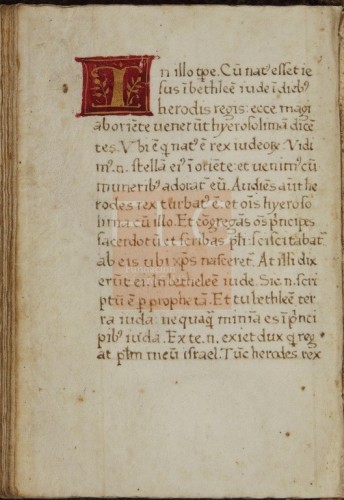 In illo tp̄e. Cū nat᷒ esset ie
sus ī bethleē iude ī dieb᷒
herodis regis: ecce magi
ab oriēte venerūt hyerosolimā dicē
tes. Ubi ē q̄ nat᷒ ē rex iudeoꝝ. Vidi
m᷒. n. stellā ei᷒ ī oriēte: et venim᷒ cū
munerib᷒ adorare eū. Audiēs aūt he
rodes rex turbat᷒ ē. et oīs hyeroso
lima cū illo. Et cōgregās ōs p̄ncipes
sacerdotū et scribas pl̄i: sciscitabat᷒
ab eis ubi xp̄s nasceret᷒. At illi dix
erūt ei. In betheleē iude. Sic. n. scri
ptū ē p̱ prophetā. Et tu bethleē ter
ra iuda: nequaq̄ minīa es ī p̄nci
pib᷒ iuda. Ex te. n. exiet dux q̄ reg
at pl̄m meū israel. Tūc herodes. rex